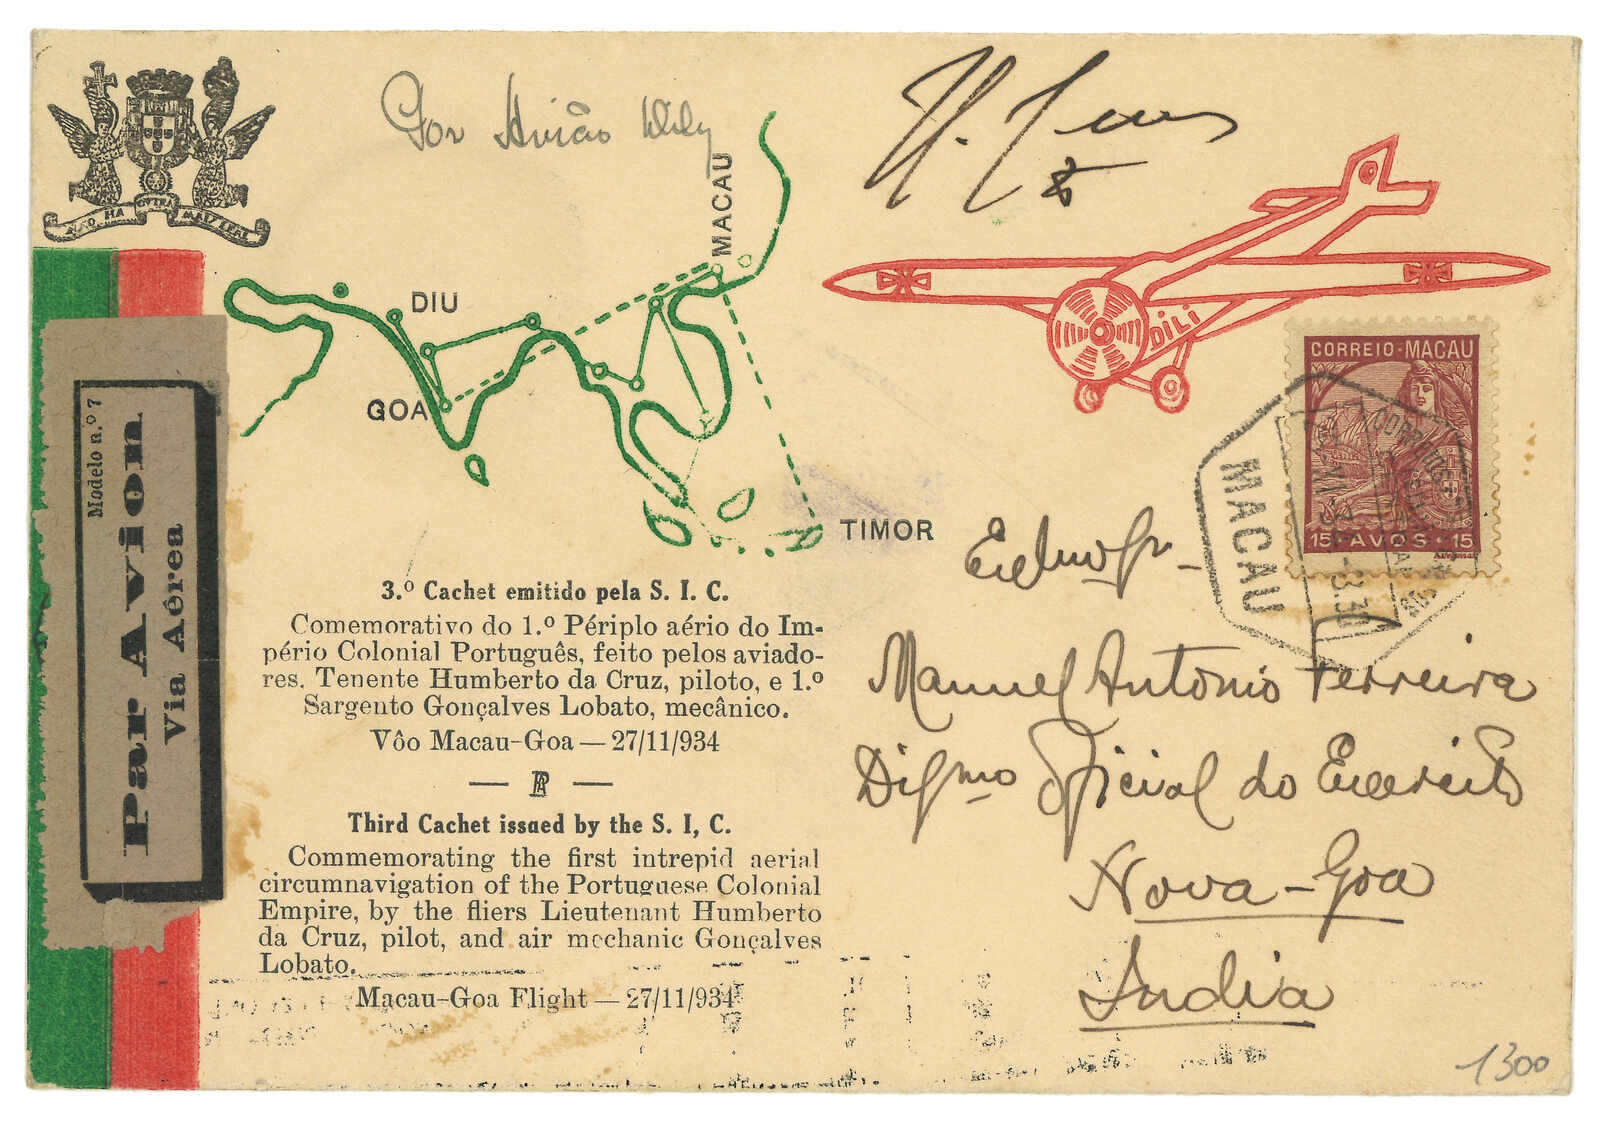 NÃO HA OUTRA MAIS LEAL
Por Avião Dily
MACAU
DIU
GOA
TIMOR
DILI
CORREIO · MACAU
15 · AVOS · 15
MACAU
Modelo n.º 7
Par Avion
Via Aérea
3.º Cachet emitido pela S. I. C.
Comemorativo do 1.º Périplo aério do Im-
pério Colonial Português, feito pelos aviado-
res. Tenente Humberto da Cruz, piloto, e 1.º
Sargento Gonçalves Lobato, mecânico.
Vôo Macau-Goa — 27/11/934
Third Cachet issued by the S. I, C.
Commemorating the first intrepid aerial
circumnavigation of the Portuguese Colonial
Empire, by the fliers Lieutenant Humberto
da Cruz, pilot, and air mechanic Gonçalves
Lobato.
Macau-Goa Flight — 27/11/934
Manuel António Ferreira
Dig.mo Oficial do Exercito
Nova-Goa
India
1300